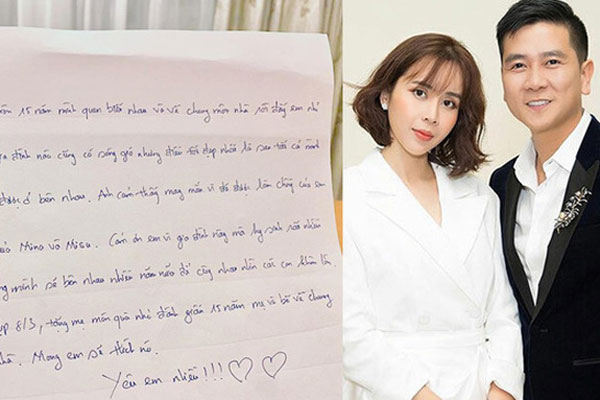 15 năm mình quen biết nhau và về chung một nhà rồi đấy em nhỉ
đình nào cũng có sóng gió nhưng điều tốt đẹp nhất là sau tất cả mình
được ở bên nhau. Anh cảm thấy may mắn vì đã được làm chồng của em
Mino và Misu. Cám ơn em vì gia đình này mà hy sinh rất nhiều
mình sẽ bên nhau nhiều năm nữa để cùng nhau nhìn các con khôn lớn.
8/3, tặng mẹ món quà nhỏ đánh dấu 15 năm mẹ và bố về chung
nhà. Mong em sẽ thích nó.
Yêu em nhiều!!! ♡ ♡